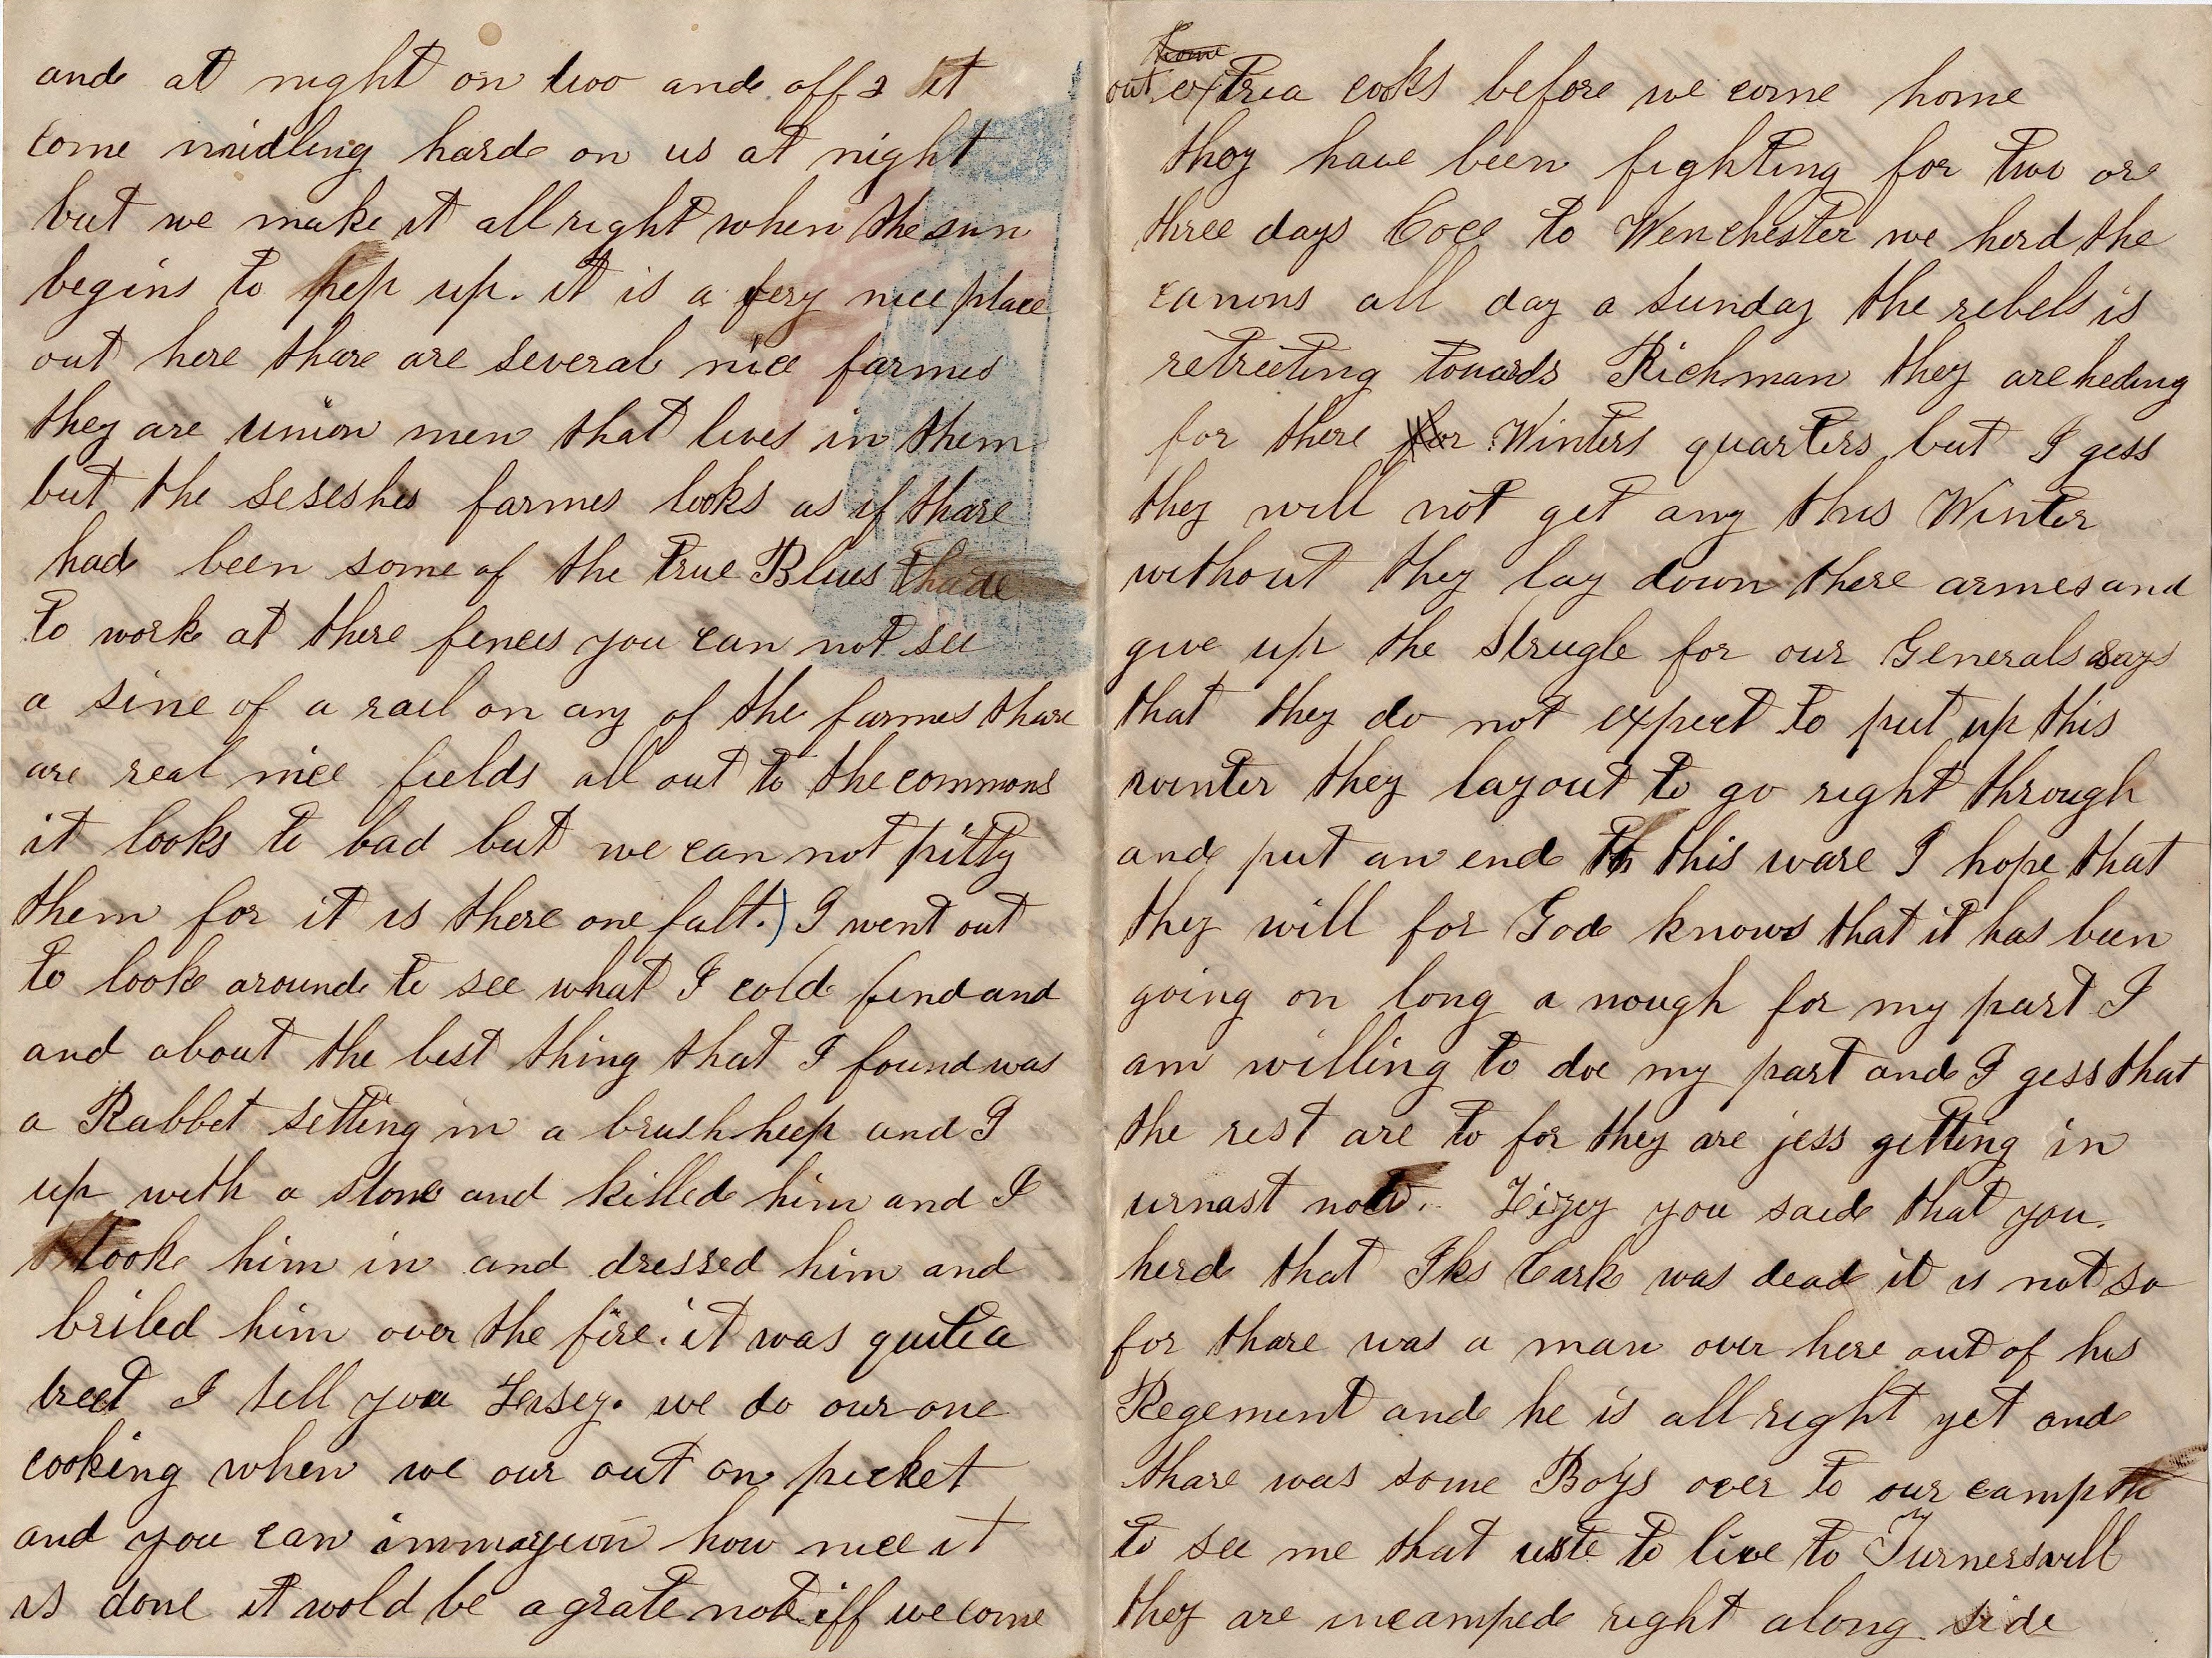 and at night on two and off 2 it
come midling hard on us at night
but we make it all right when the sun
begins to pep up. it is a very nice place
out here thare are several nice farmes
they are union men that lives in them
but the seseshes farmes looks as if thare
had been some of the true Blues thare
to work at there fences you can not see
a sine of a rail on any of the farmes thare
are real nice fields all out to the commons
it looks to bad but we can not pitty
them for it is there one falt.) I went out
to look around to see what I cold find and
and about the best thing that I found was
a Rabbet setting in a brush heep and I
up with a stone and killed him and I
tooke him in and dressed him and
briled him over the fire. it was quite a
treet I tell you we do our one
cooking when we our out on picket
and you can immagion how nice it
is done it wold be a grate note iff we come
out extrea cooks before we come home
they have been fighting for two ore
three days to Wenchester we herd the
canons all day a sunday the rebels is
retreeting towards Richman they are heding
for there for Winters quarters but I gess
they will not get any this Winter
without they lay down there armes and
give up the strugle for our Generals says
that they do not expect to put up this
winter they layout to go right through
and put an end to this ware I hope that
they will for God knows that it has been
going on long a nough for my part I
am willing to doe my part and I gess that
the rest are to for they are jess getting in
urnast now. you said that you
herd that was dead it is not so
for thare was a man over here out of his
Regement and he is all right yet and
thare was some Boys over to our camp to
to see me that uste to live to Turnersvill
they are incamped right along side